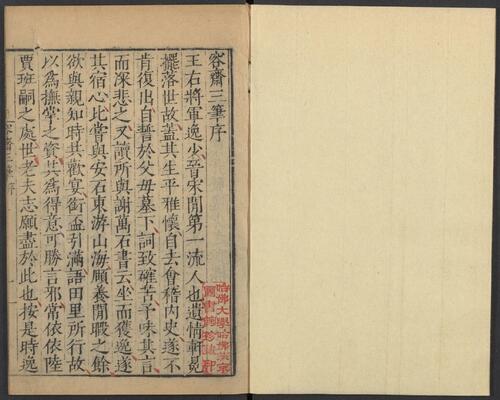 容齋三筆序
王右將軍逸少晉宋閒第一流人也遺情軒冕
擺落世故蓋其生平雅懷自去會稽內史遂不
肯復出自誓於父母墓下詞致確苦予味其言
而深悲之又讀所與謝萬石書云坐而獲逸遂
其宿心比嘗與安石東游山海頤養閒暇之餘
欲與親知時共歡宴銜盃引滿語田里所行故
以為撫掌之資其為得意可勝言邪常依依陸
賈班嗣之處世老夫志願盡於此也按是時逸
容齋三筆序
哈佛大學哈佛燕京
圖書館珍藏印